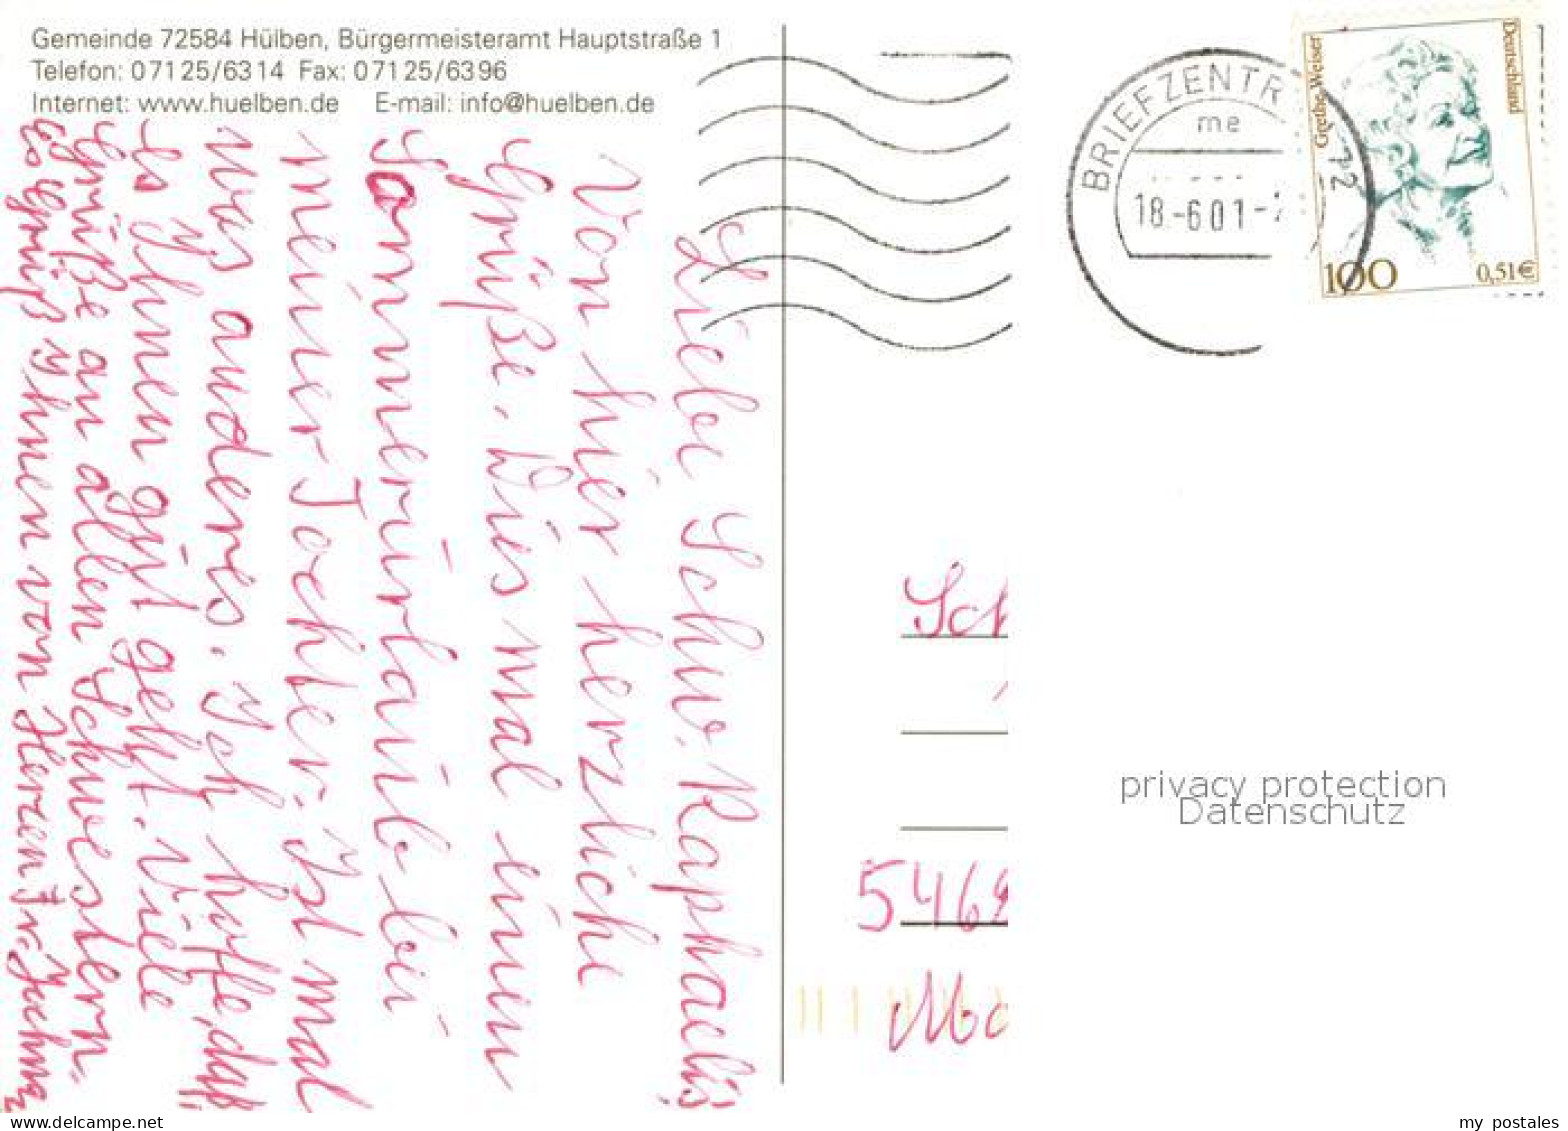 Gemeinde 72584 Hülben, Bürgermeisteramt Hauptstraße 1
Telefon: 07125/6314 Fax: 07125/6396
Internet: www.huelben.de E-mail: info@huelben.de
Liebe Schw. Raphaelis
Von hier herzliche
Grüße. Dies mal einen
Sommerurlaub bei
meiner Tochter. Ist mal
was anderes. Ich hoffe, daß
es Ihnen gut geht. Viele
Grüße an allen Schwestern.
Es grüß Ihnen von Herzen Fr.
BRIEFZENTR
me
72
18.-6.01-
Grethe Weiser
Deutschland
100
0,51€
Sch
5469
Mo
privacy protection
Datenschutz
www.delcampe.net
my_postales